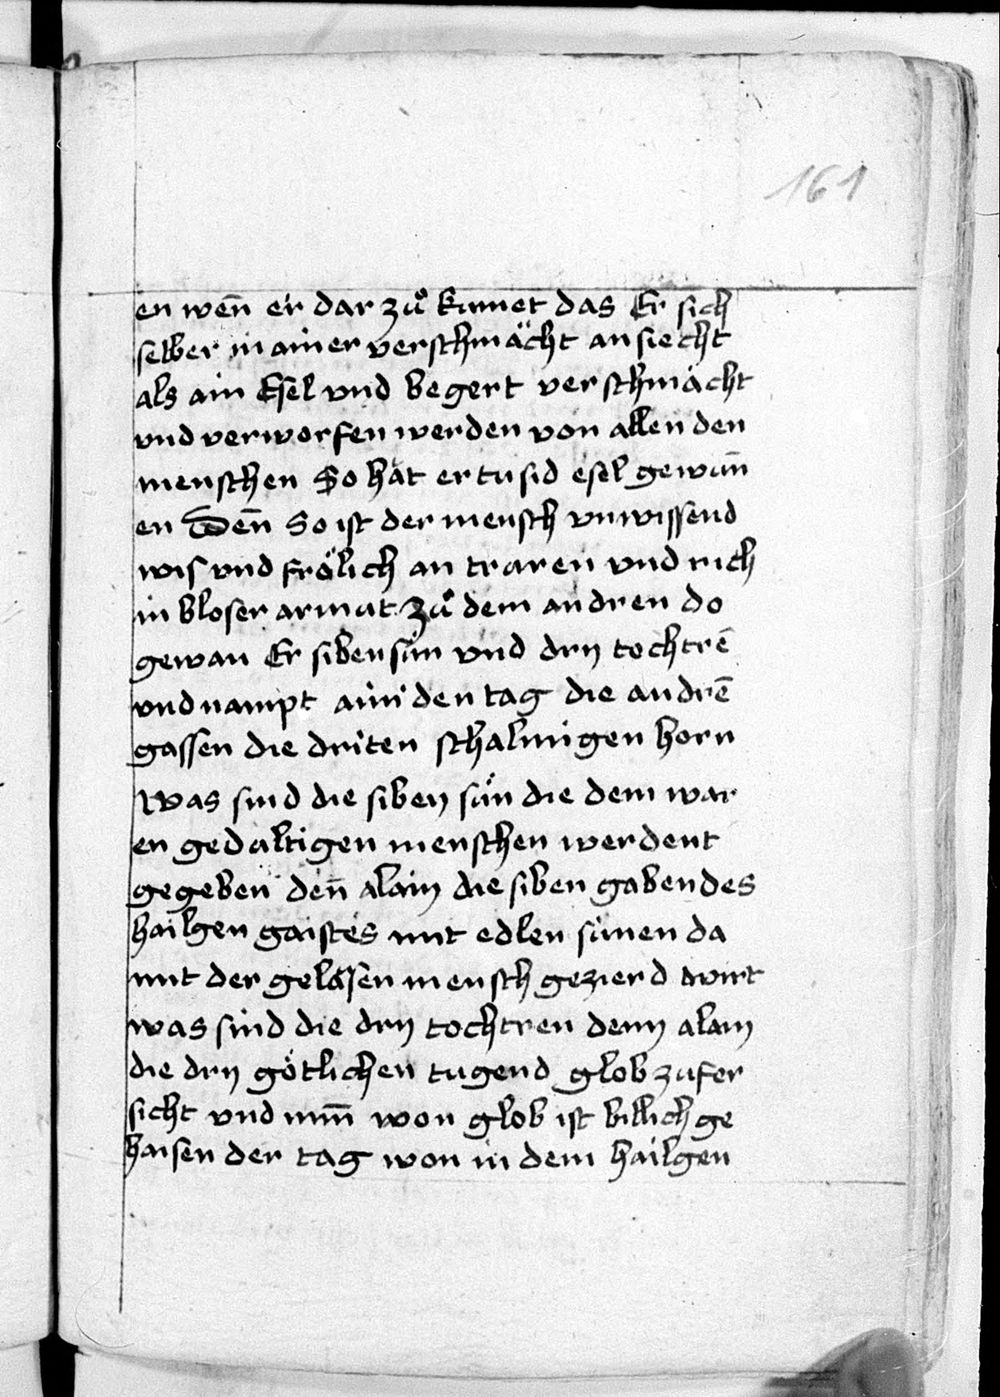 161
en wen̄ er dar zuͦ kumet das Er sich
selber in ainer verschmächt ansiecht
als ain Esel vnd begert verschmächt
vnd verworfen werden von allen den
menschen So hät er tusid esel gewun̄
en Den̄ So ist der mensch vnwissend
wis vnd frölich an traren vnd rich
in bloser armut zuͦ dem andren do
gewan Er siben sün vnd dry tochtrē
vnd nampt aini den tag die andrē
gassen die driten schalmigen horn
Was sind die siben sün die dem war
en gedultigen menschen werdent
gegeben den̄ alain die siben gaben des
hailgen gaistes mit edlen sinnen da
mit der geläsen mensch gezierd wirt
was sind die dry tochtren denn alain
die dry götlichen tugend glob zufer
sicht vnd min̄ won glob ist billich ge
haisen der tag won in dem hailgen